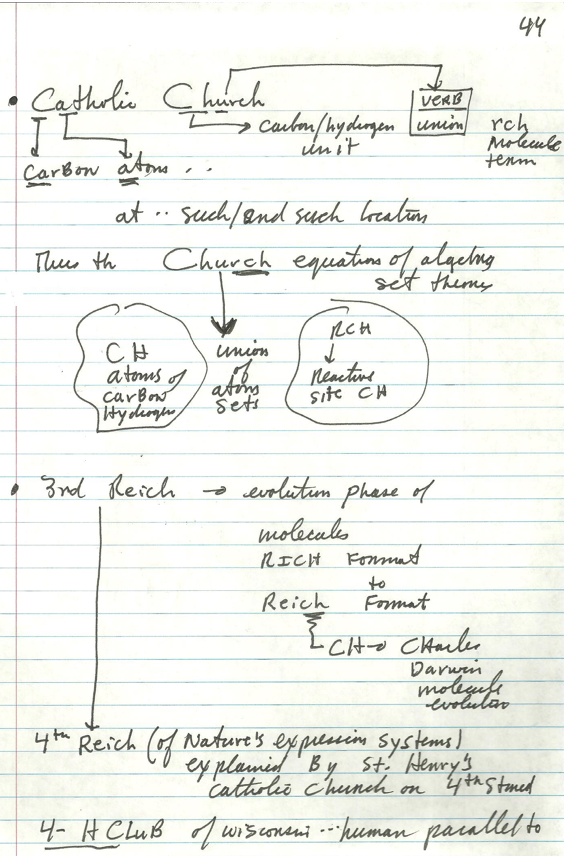 44
• Catholic Church VERB
carbon/hydrogen unit union rch molecule term
carbon atoms ..
at .. such/and such location
Thus th Church equation of algebra set theory
CH atoms of carbon hydrogen
union of atoms sets
RCH
Reactive site CH
• 3rd Reich → evolution phase of
molecules
RICH Format
to
Reich Format
CH→ CHarles
Darwin
molecule
evolution
4th Reich (of Nature's expression systems)
explained By St. Henry's
catholic church on 4th Street
4-H CLuB of wisconsin ... human parallel to